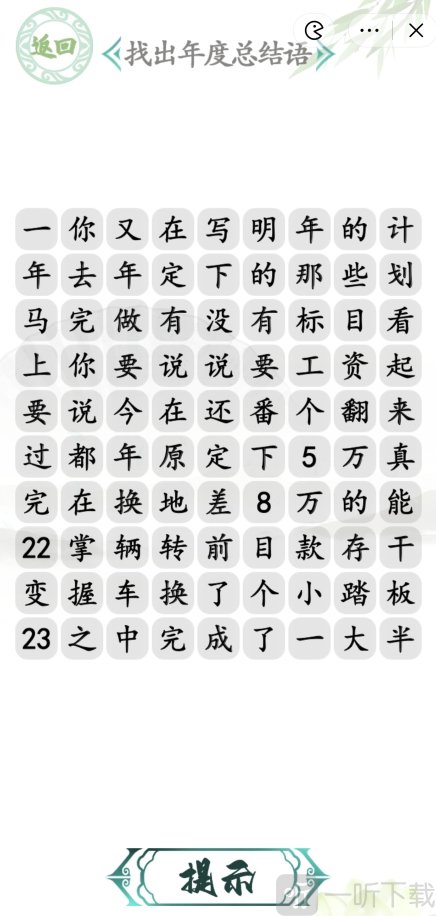 返回
找出年度总结语
一你又在写明年的计
年去年定下的那些划
马完做有没有标目看
上你要说说要工资起
要说今在还番个翻来
过都年原定下5万真
完在换地差8万的能
22掌辆转前目款存干
变握车换了个小踏板
23之中完成了一大半
提示
一听下载